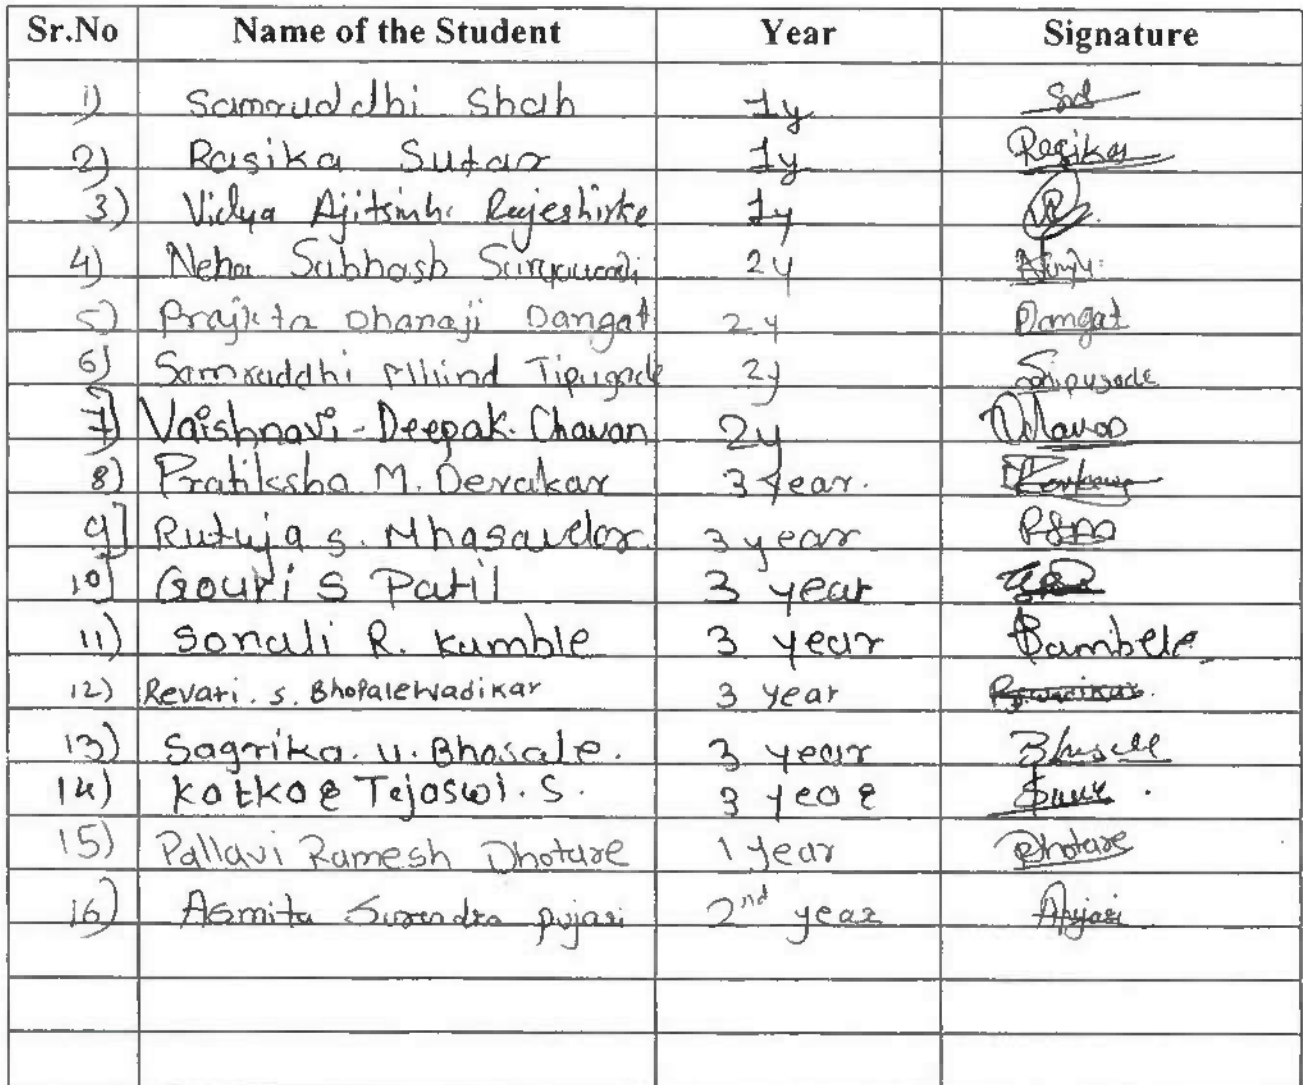 Sr.No Name of the Student Year Signature
1) Samruddhi Shah 1y
2) Rasika Sutar 1y Rasika
3) Vidya Ajitsinh Rajeshirke 1y
4) Neha Subhash Suryawadi 2y
5) Prajkta Dhanaji Dangat 2y Dangat
6) Samruddhi Milind Tipugade 2y Stipugade
7) Vaishnavi-Deepak. Chavan 2y
8) Pratiksha M. Devakar 3 year.
9) Rutuja S. Mhasavelar 3 year RSM
10) Gouri S Patil 3 year
11) Sonali R. Kumble 3 year
12) Revati. S. Bhopalewadikar 3 year
13) Sagrika. U. Bhosale. 3 year
14) Katkar Tejaswi. S. 3 year
15) Pallavi Ramesh Dhotare 1 year Dhotare
16) Asmita Surendra pujari 2nd year Apujari